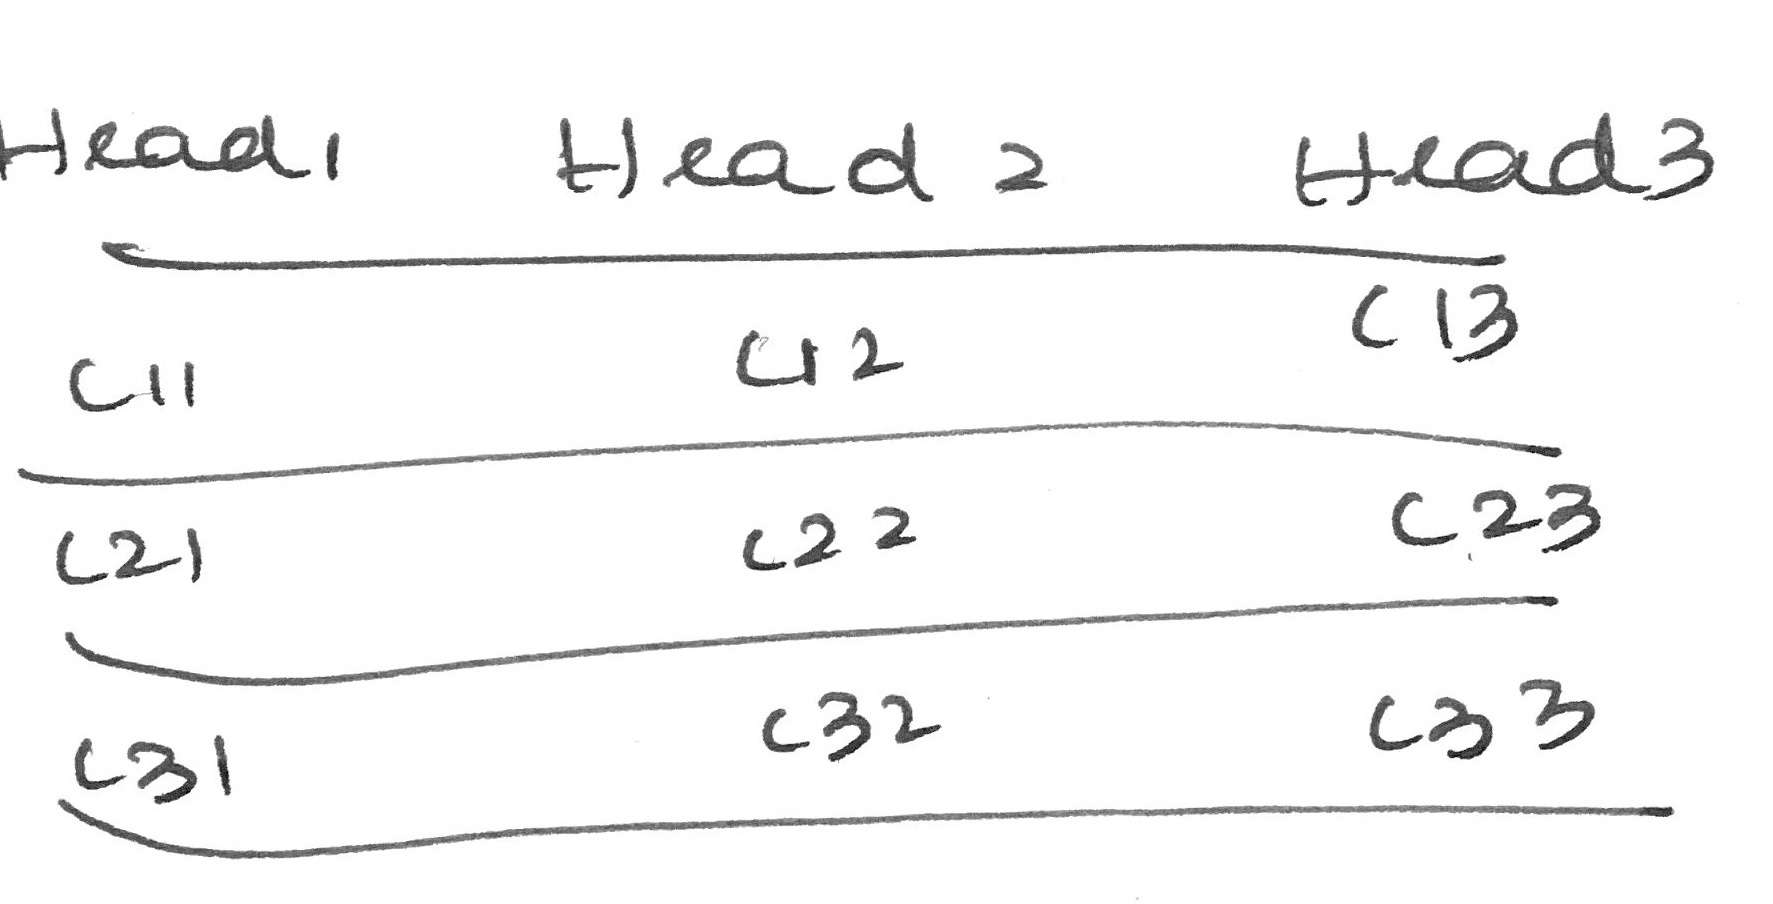 Head1 Head 2 Head3
C11 C12 C13
C21 C22 C23
C31 C32 C33